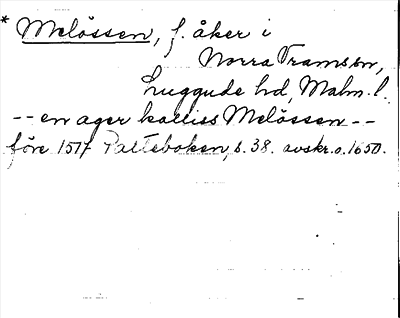 * Melössen, f. åker i
Norra Vram sn,
Luggude hd, Malm. l.
-- en ager kalliss Melössen --
före 1517 Palteboken, s. 38. avskr. o. 1650.